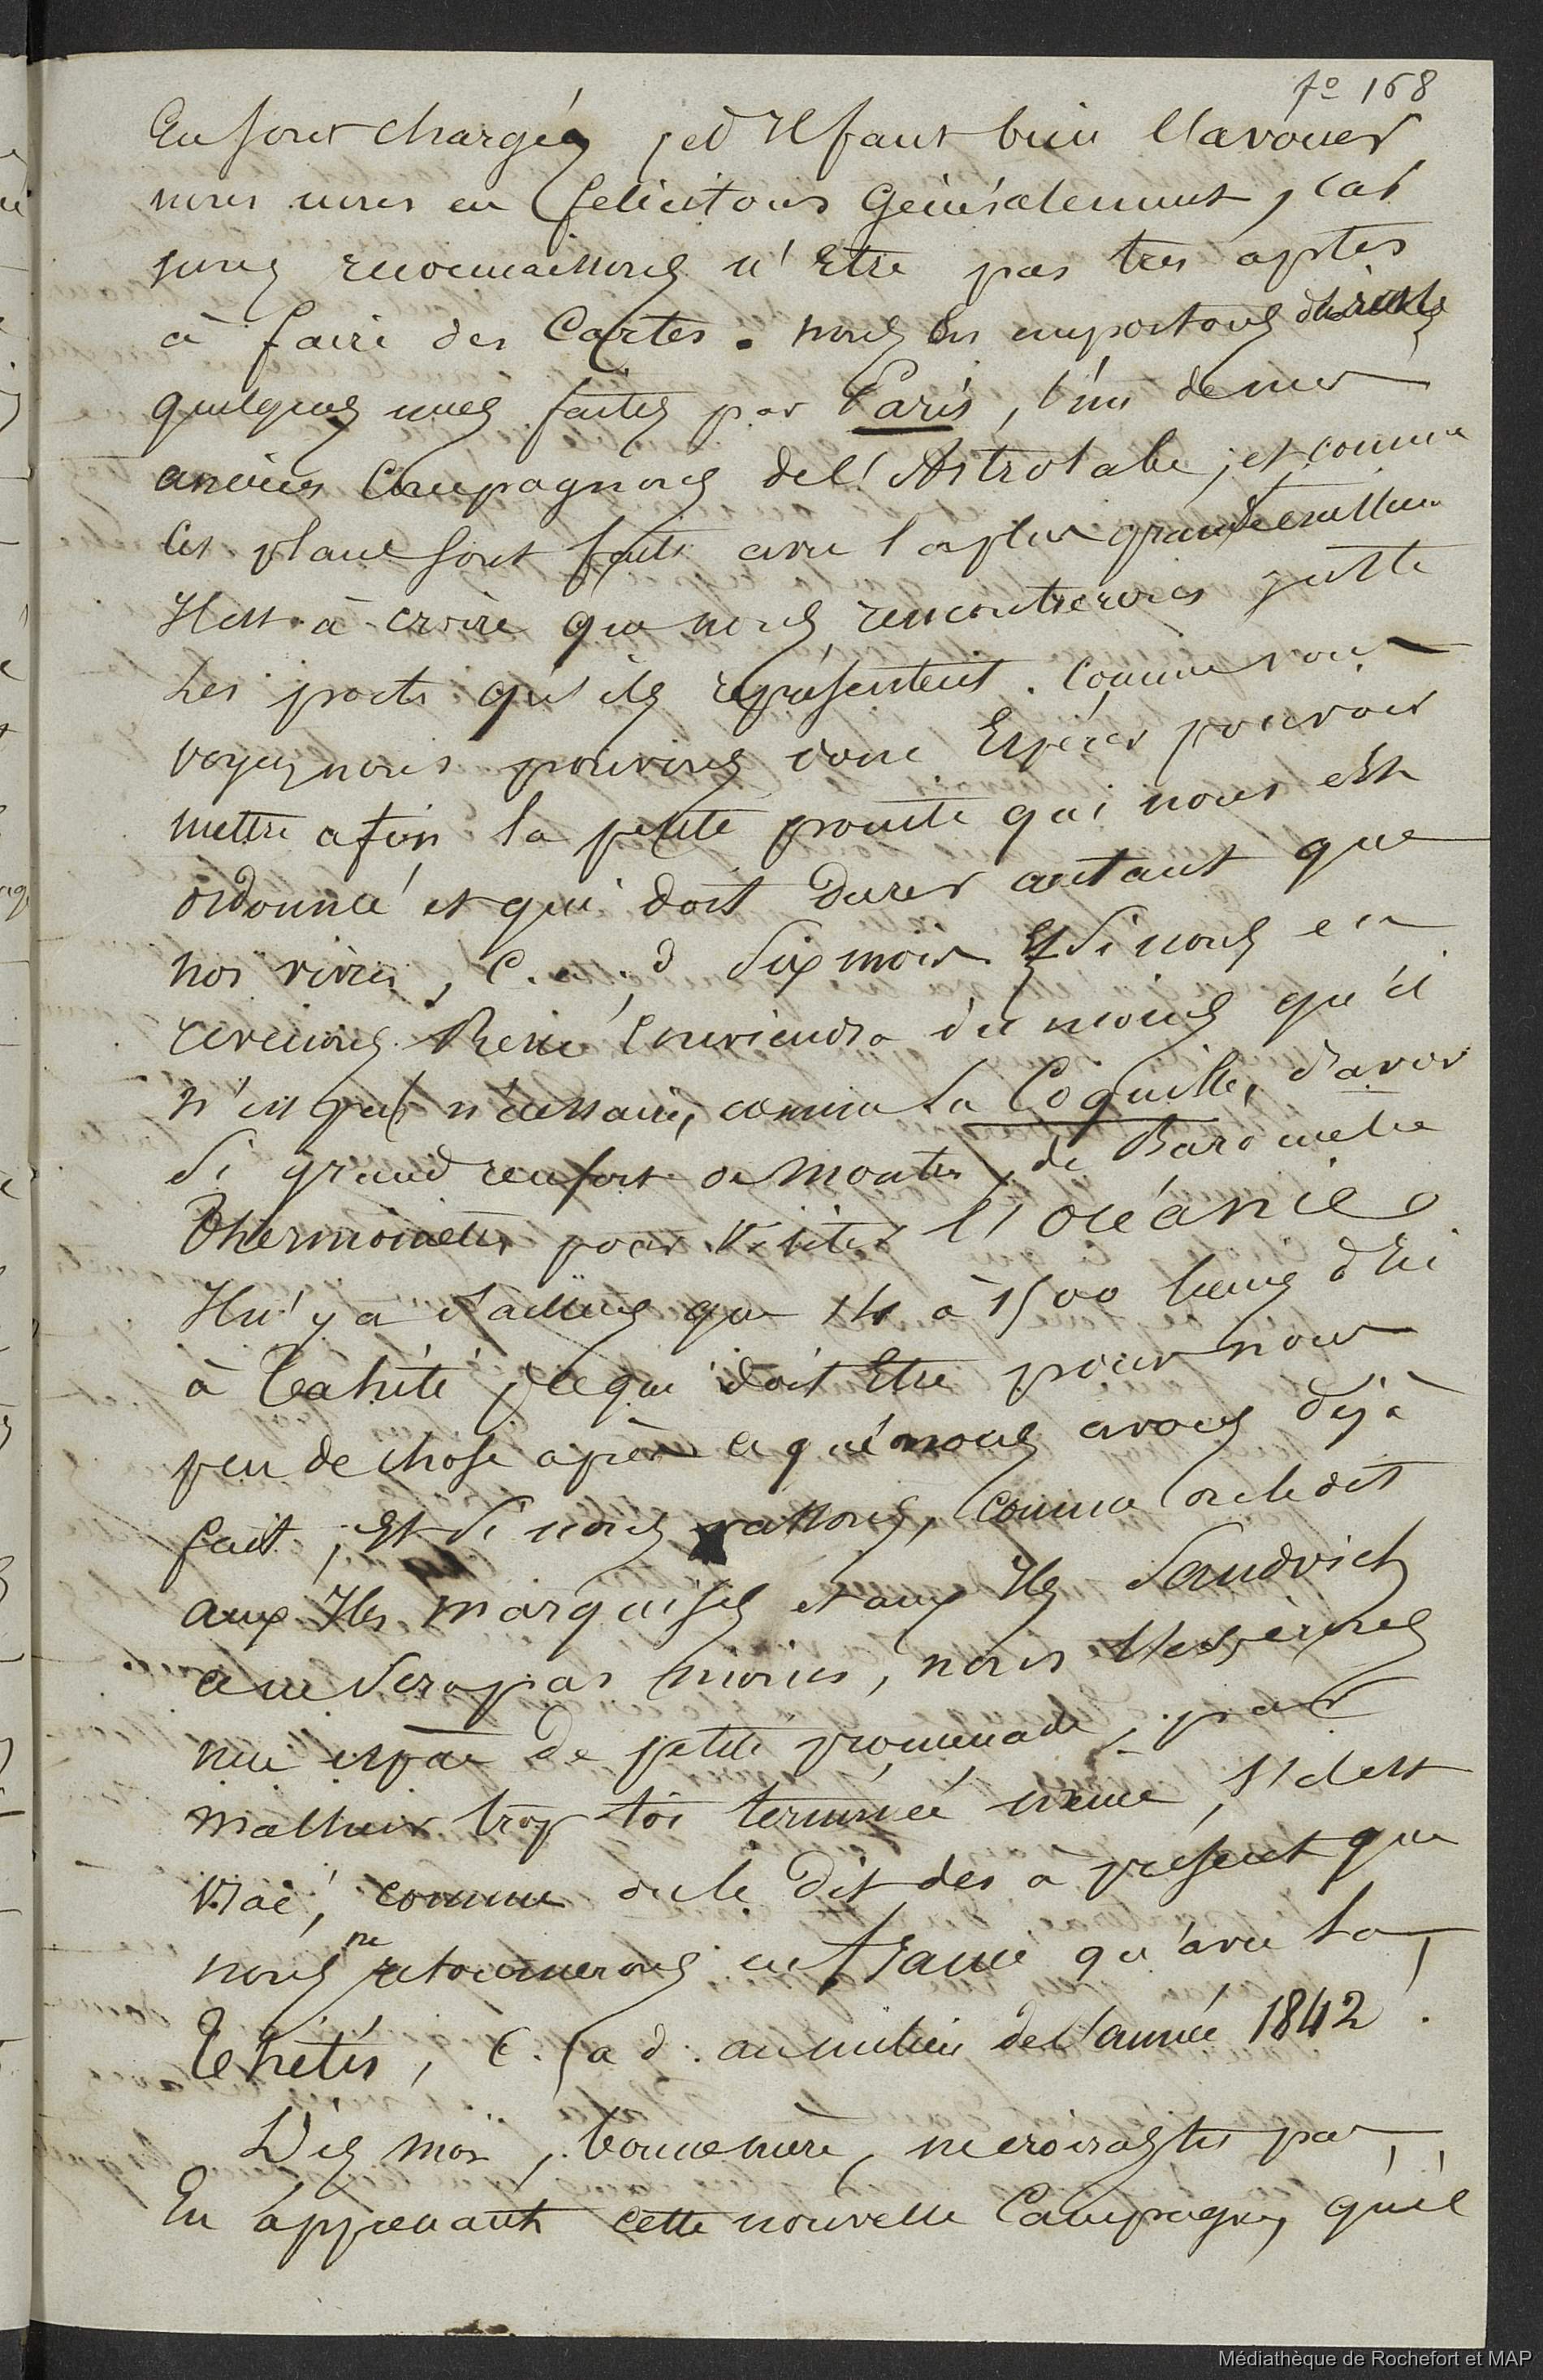 fo 168
En sont chargés, et Il faut bien l'avouer
nous nous en felicitons Généralement, car
nous reconnaissons n'Etre pas tres aptes
à faire des Cartes. nous en emportons
quelques unes faites par Paris, l'un de nos
anciens Compagnons de l'Astrolabe, et comme
Ces plans sont faits avec la plus grande
Il est à croire que nous rencontrerons juste
Les ports qu'ils représentent. Comme vous
voyez nous pouvons donc Espérer pouvoir
mettre a fin la petite pointe qui nous est
ordonnée et qui doit Durer autant que
nos vivres, C. a. d Six mois. Et Si nous en
revenons René Conviendra du moins qu'il
n'est pas nécessaire, comme La Coquille, d'avoir
Si grand renfort de Montres, de Barometre
Thermometres pour Visiter l'océanie.
Il n'y a d'ailleurs que 14 à 1500 lieues d'Ici
à Tahiti, ce qui doit Etre pour nous
peu de chose après ce que nous avons déjà
fait, Et Si nous allons, comme on le dit
aux Iles marquises et aux Iles Sandwich
ce ne Sera pas moins, nous l'espérons
une espèce de petite promenade, par
malheur trop tôt terminée même, s'il est
Vrai, comme on le Dit des à présent que
nous ne retournerons en France qu'avec la
Thétis, C. a d. au milieu de l'année 1842.
Dis moi, bonne mère, ne croirais tu pas
En apprenant cette nouvelle Campagne, qu'il
Médiathèque de Rochefort et MAP